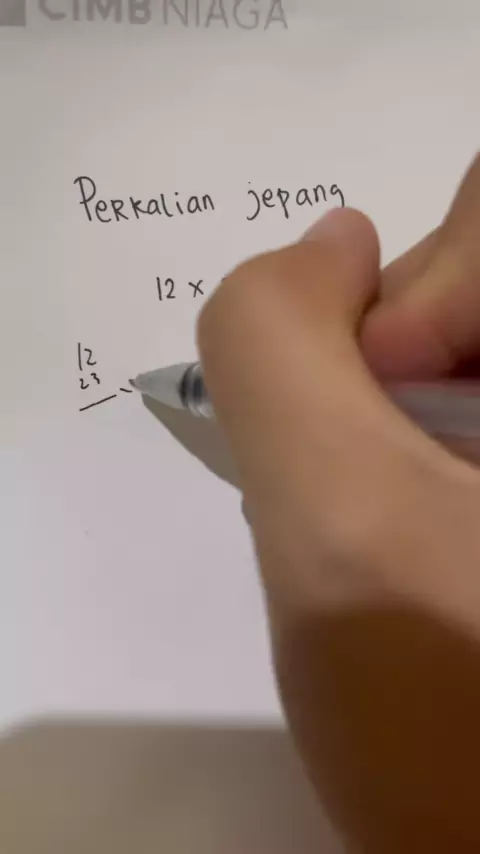 CIMB NIAGA
Perkalian jepang
12 x
12
23